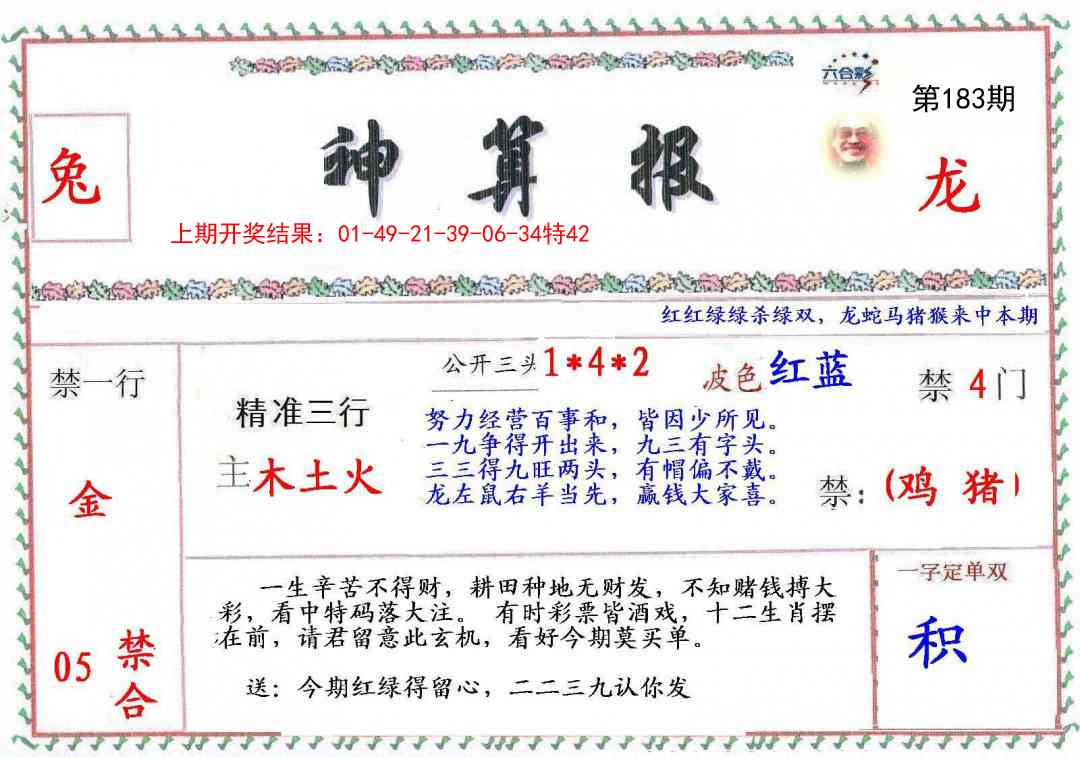 六合彩
第183期
兔
神算报
龙
上期开奖结果：01-49-21-39-06-34特42
红红绿绿杀绿双，龙蛇马猪猴来中本期
禁一行
公开三头1*4*2
波色红蓝
禁4门
精准三行
主木土火
努力经营百事和，皆因少所见。
一九争得开出来，九三有字头。
三三得九旺两头，有帽偏不戴。
龙左鼠右羊当先，赢钱大家喜。
禁：(鸡 猪)
金
一生辛苦不得财，耕田种地无财发，不知赌钱搏大
彩，看中特码落大注。 有时彩票皆酒戏，十二生肖摆
在前，请君留意此玄机，看好今期莫买单。
送：今期红绿得留心，二二三九认你发
一字定单双
积
05
禁合